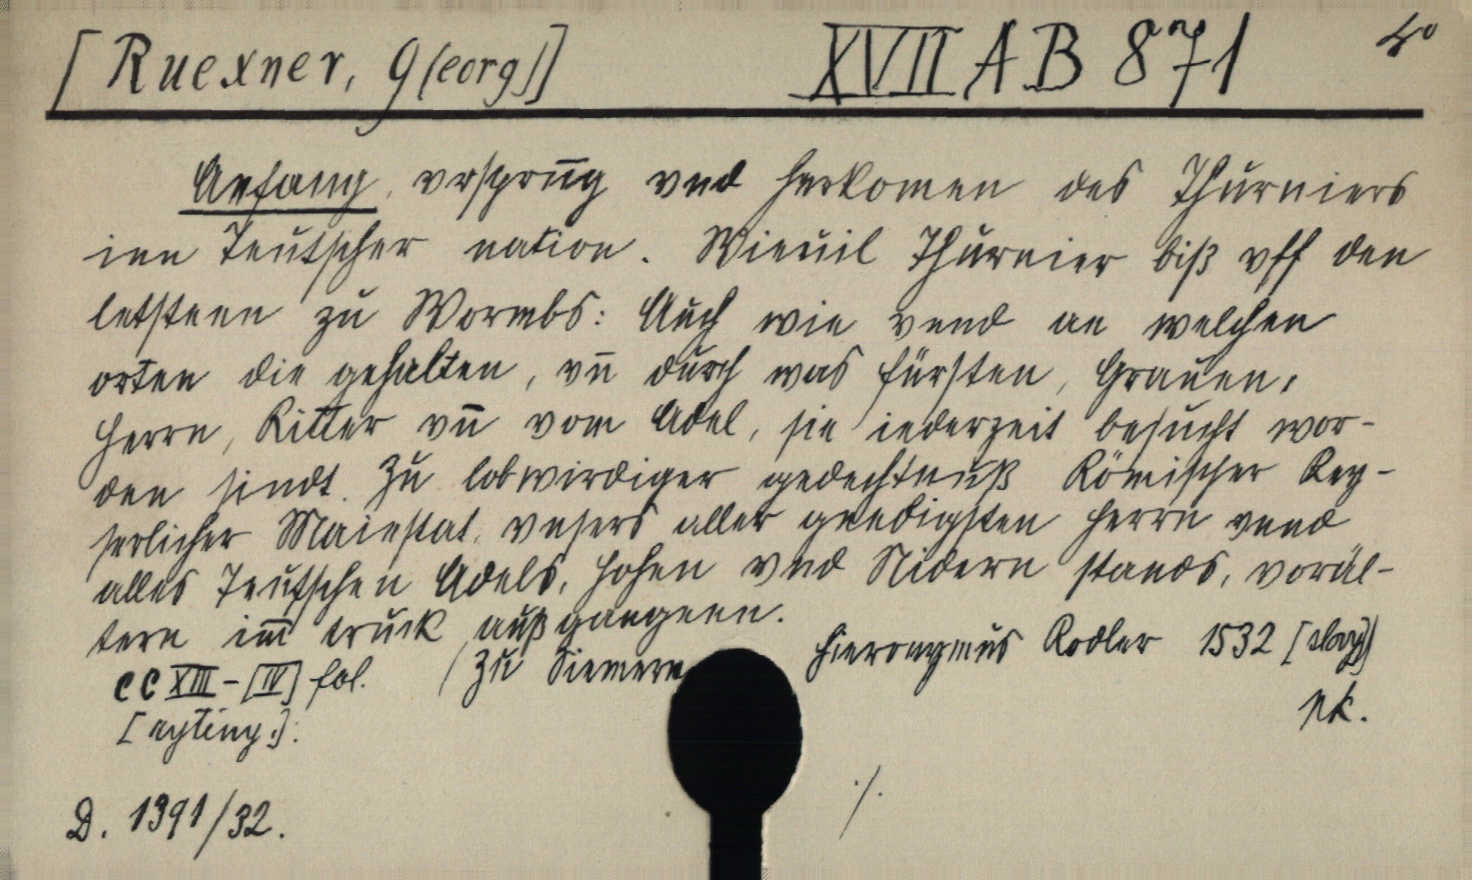 [Ruexner, G(eorg)] XVII A B 871 4°
Anfang, vrsprūg vnd herkomen des Thurniers
inn Teutscher nation. Wieuil Thurnier biß vff den
letstenn zu Wormbs: Auch wie vnnd an welchen
orten die gehalten, vn̄ durch was fürsten, Grauen,
Herrn, Ritter vn̄ vom Adel, sie iederzeit besucht wor-
den sindt. Zu lobwirdiger gedechtnuß Römischer Key-
serlicher Maiestat, vnsers aller gnedigsten Herrn vnnd
alles Teutschen Adels, hohen vnd Nidern stands, voräl-
tern im̄ truck außgangenn.
CC XIII-[IV] fol. (Zu Siemern Hieronymus Rodler 1532
pk.
D. 1391/32. ./.